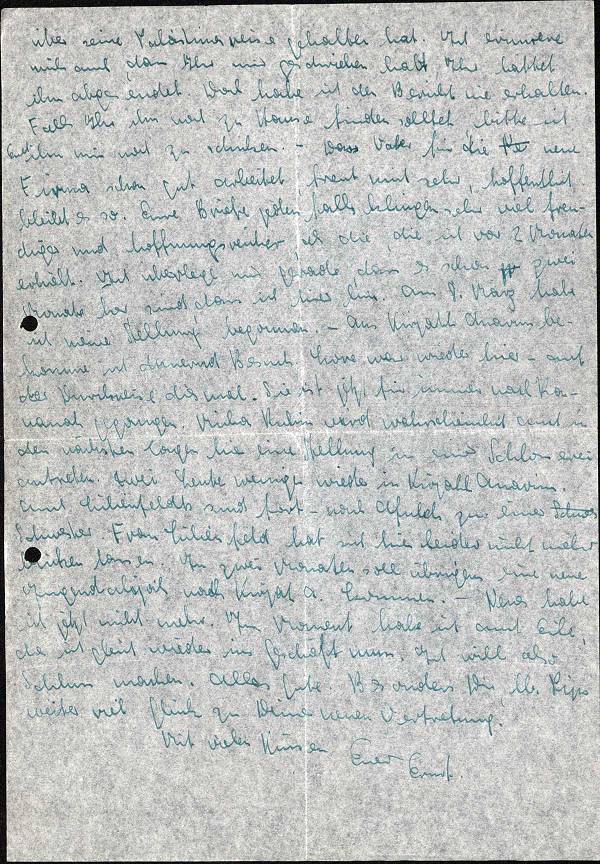 über seine Palästinareise gehalten hat. Ich erinnere
mich auch, dass Ihr mir geschrieben habt, Ihr hättet
ihn abgesendet. Doch habe ich den Bericht nie erhalten.
Falls Ihr ihn noch zu Hause finden solltet bitte ich
Euch ihn mir noch zu schicken. – Dass Vater für die neue
Firma schon gut arbeitet freut mich sehr, hoffentlich
bleibt es so. Eure Briefe jedenfalls klingen sehr viel freu-
diger und hoffnungsreicher, als die, die ich vor 2 Monaten
erhielt. Ich überlege mir gerade dass es schon zwei
Monate her sind dass ich hier bin. Am 8. März habe
ich meine Stellung begonnen. – Aus Kirjath Anavim be-
komme ich dauernd Besuch. Lore war wieder hier – auf
der Durchreise diesmal. Sie ist jetzt für immer nach
gegangen. wird wahrscheinlich auch in
den nächsten Tagen hier eine Stellung in einer Schlosserei
antreten. Zwei Leute weniger wieder in Kirjath Anavim.
Auch Lilienfelds sind fort – nach Afuleh zu einer
Schwester. Frau Lilienfeld hat sich hier leider nicht mehr
blicken lassen. In zwei Monaten soll übrigens eine neue
Jugendalijah nach Kirjat A. kommen. – Neues habe
ich jetzt nicht mehr. Im Moment habe ich auch Eile,
da ich gleich wieder ins Geschäft muss. Ich will also
Schluss machen. Alles Gute. Besonders Dir, lb.
weiter viel Glück zu Deiner neuen Vertretung.
Mit vielen Küssen Euer Ernst.